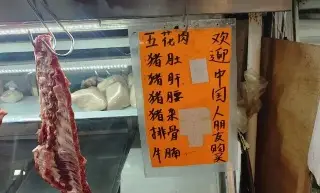 五花肉
猪肚
猪肝
猪腰
猪杂
排骨
牛腩
欢迎中国人朋友购买